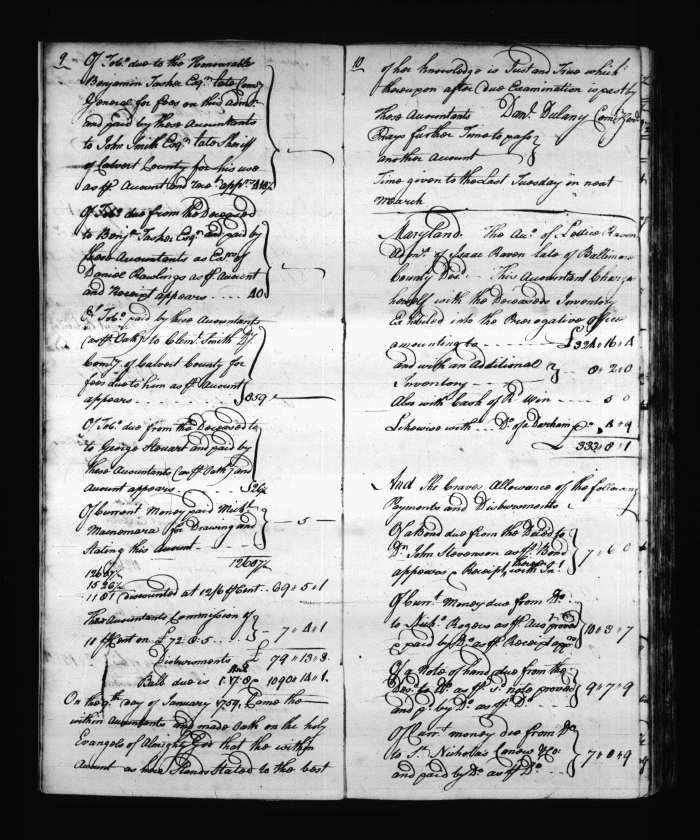 9
Of Tobo. due to the Honourable
Benjamin Tasker Esqr. late Comy.
General for fees on this admn.
and paid by these Accountants
to John Smith Esqr. late Sheriff
of Calvert County for his use
as P Account and rect. appr.
Of Tobo. due from the Deceased
to Benja. Tasker Esqr. and paid by
these Accountants as Exrs. of
Daniel Rawlings as P Account
and Receipt appears .... 40
Of Tobo. paid by these Accountants
(as P Oath) to Clemt. Smith Dy.
Comy. of Calvert County for
fees due to him as P Account
appears ..... 859
Of Tobo. due from the Deceased
to George Steuart and paid by
these Accountants (as P Oath) and
Account appears ....
Of Current Money paid Michl.
Macnemara for Drawing and
Stating this Account .... — 5 —
1265½
1265½
discounted at 12/6 P Cent .. 69 " 5 " 1
These Accountants Commission of
10 P Cent on £72 : 0 : 5 ... 7 " 4 " 1
Disbursments £ 79 " 13 " 3
Ball due is
On the 9th. day of January 1759, Came the
within accountants and made Oath on the holy
Evangels of Almighty God that the within
Account as here Stands Stated to the best
10
of her knowledge is Just and True which
thereupon after due Examination is past by
These Accountants Danl. Dulany Comy. Genl.
Prays further Time to pass
another Account
Time given to the Last Tuesday in next
March
Maryland The Acct. of Lettice Raven
Admx. of Isaac Raven late of Baltimore
County Decd. This Accountant Charges
herself with the Deceaseds Inventory
Exhibited into the Prerogative office
amounting to ...... £324 " 16 " 4
and with an Additional
Inventory .... 8 " 2 " 0
Also with Cash of Rd. .... 5 " 0
Likewise with .. Do. of a Darcham
333 " 8 " 1
And She Craves Allowance of the following
Payments and Disbursments
Of a Bond due from the Deced. to
Dr. John Stevenson as P Bond
appears & Receipt thereon 7 " 6 " 0
Of Currt. Money due from Do.
to Nichs. Rogers as P Acct. proved
& paid by Do. as P Receipt appr. 10 " 3 " 7
Of a Note of hand due from the
Decd. to Do. as P sd. note proved
and pd. by Do. as P Do. 9 " 7 " 9
Of Currt. money due from Do.
to St. Nicholas Carew & Co.
and paid by Do. as P Do. 7 " 0 " 9